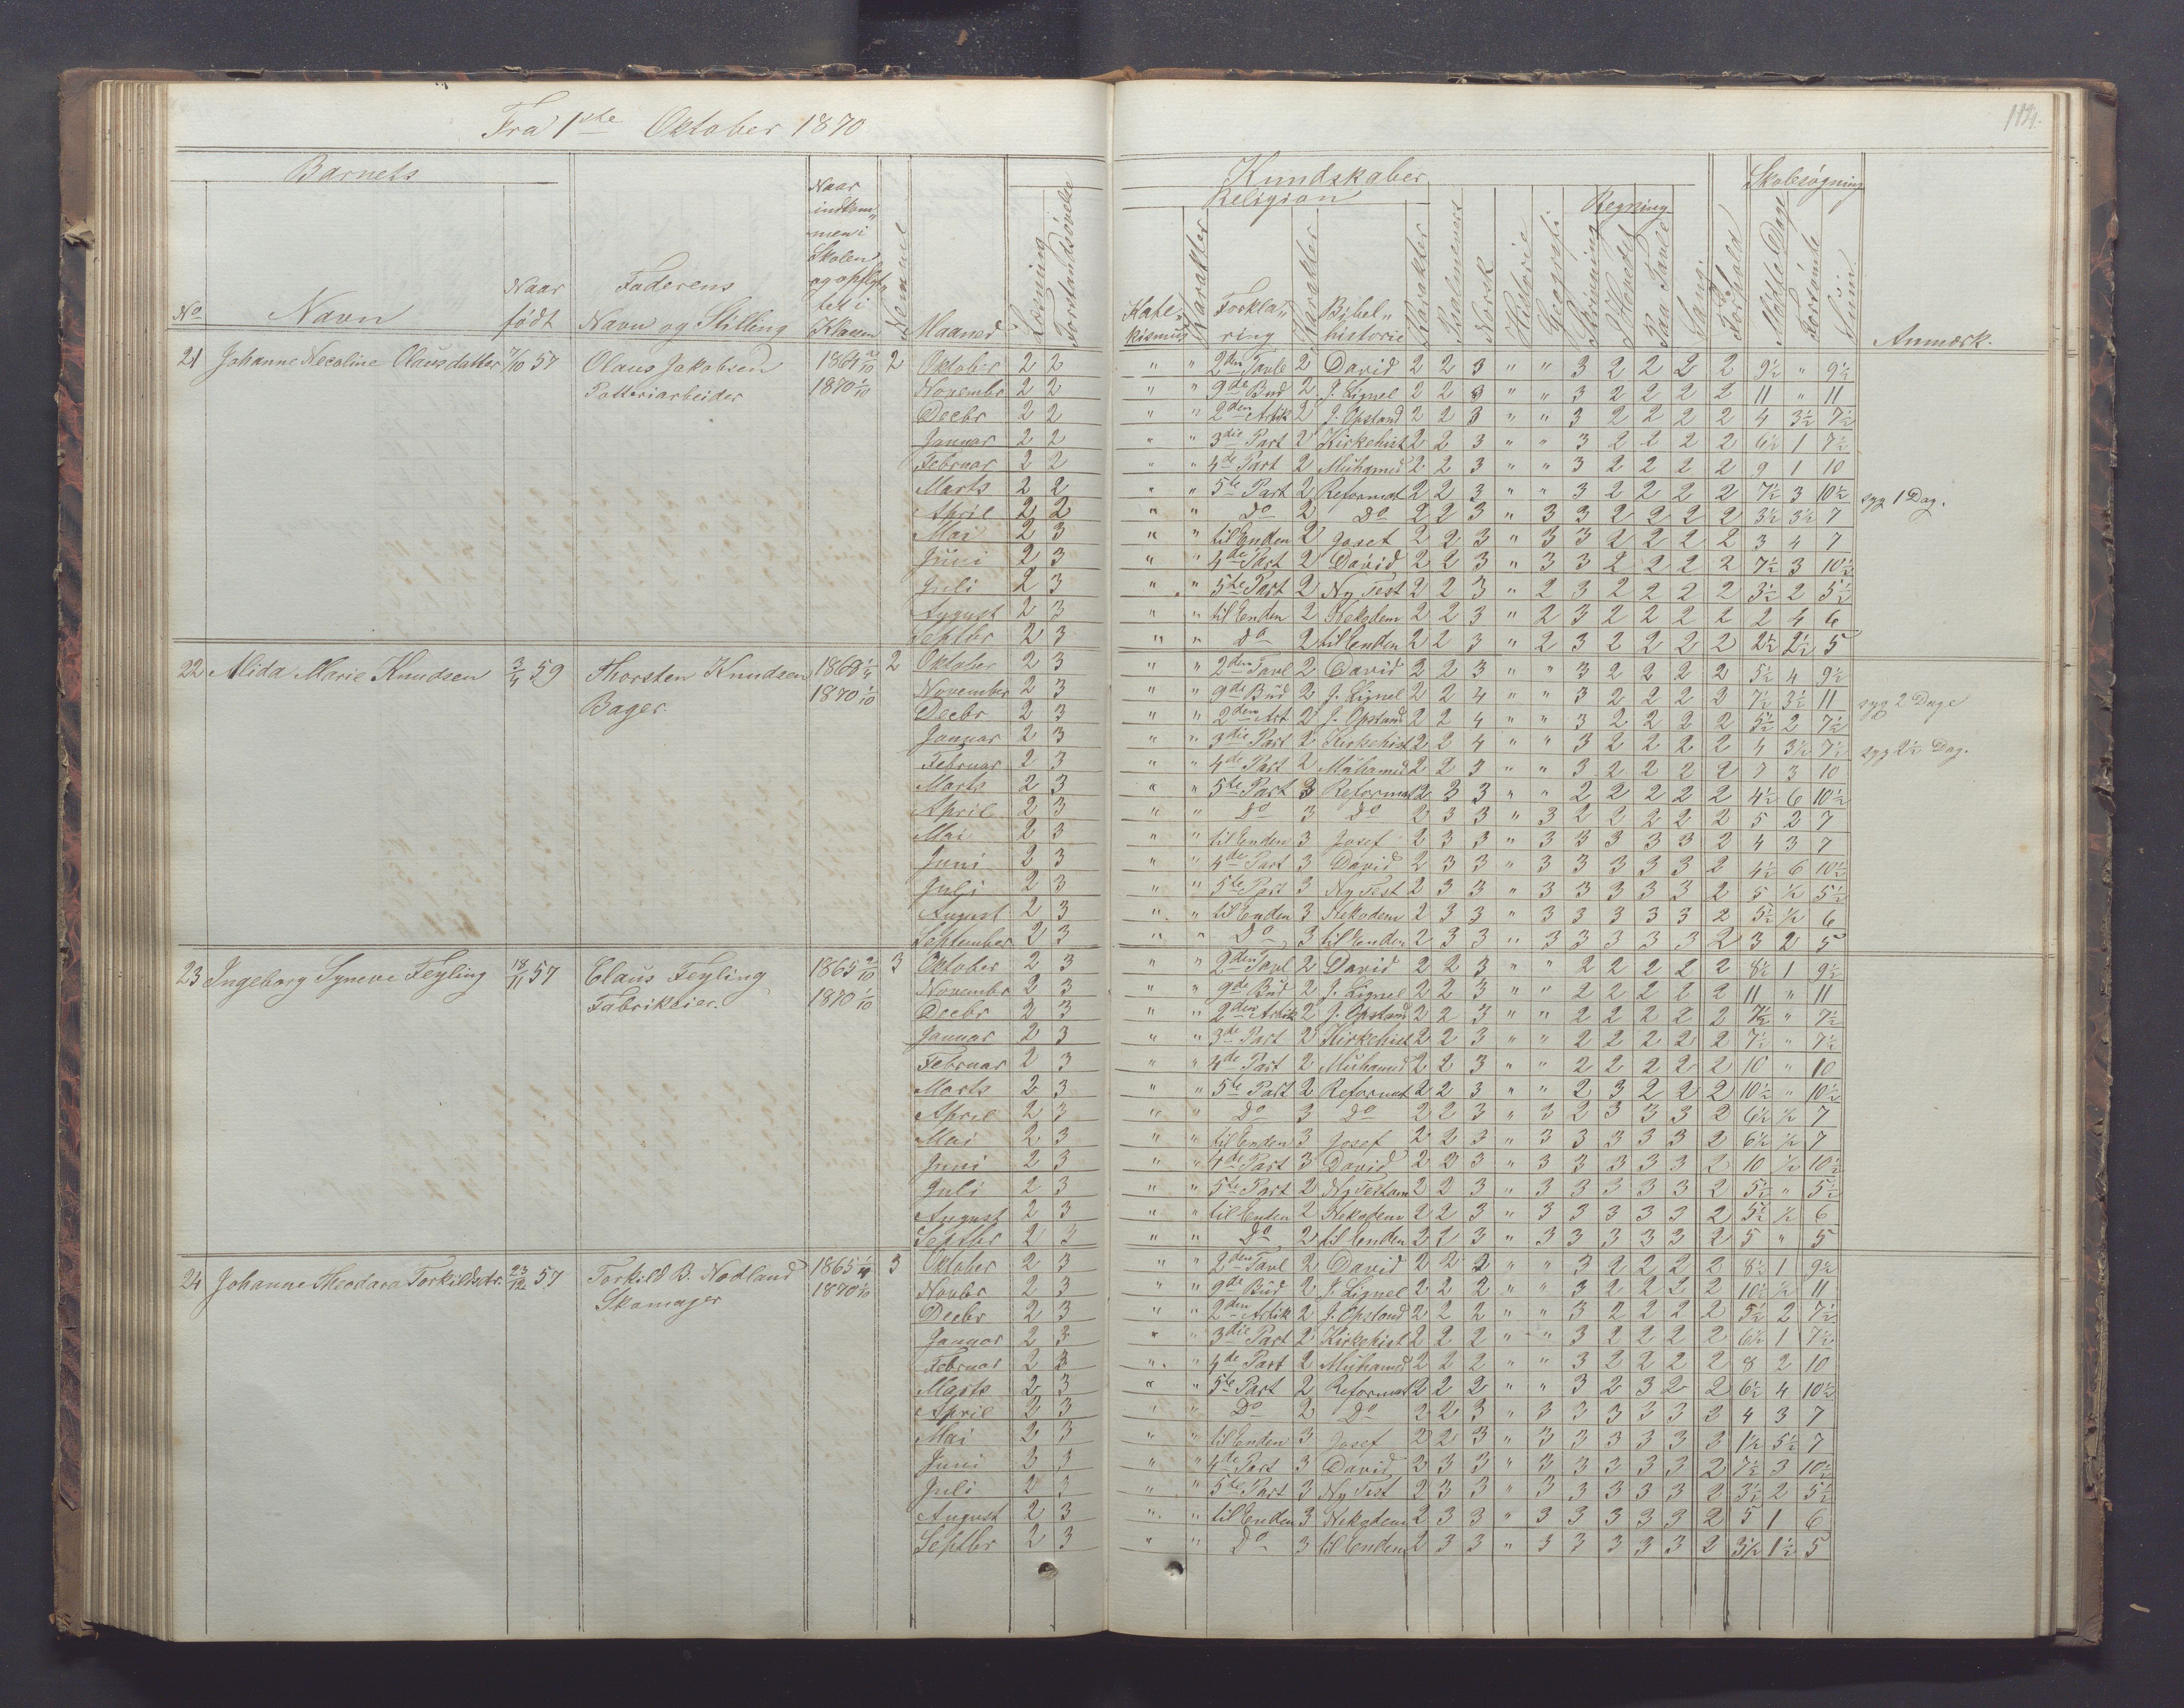 Fra 1ste Oktober 1870
114.
Barnets
No
Navn
Naar født
Faderens Navn og Stilling
Naar indkommen i Skolen og opflyttet i Klassen
Nummer
Maaned
Læsning
Forstandsøvelse
Kundskaber
Religion
Katekismus
Karakter
Forklaring
Karakter
Bibelhistorie
Karakter
Psalmevers
Norsk
Historie
Geografi
Skrivning
Regning
I Hovedet
Paa Tavle
Sang
Forhold
Skolesøgning
Mødte Dage
Forsømte
Summ
Anmærk.
21 Johanne Necoline Olausdatter 7/10 57 Olaus Jakobsen Potteriarbeider 2
1870 1/10
Oktober 2 2 " " 2den Tavle 2 David 2 2 3 " " 3 2 2 2 2 9½ " 9½
Novembr 2 2 " " 9de Bud 2 J. Lignel 2 2 3 " " 3 2 2 2 2 11 " 11
Decbr 2 2 " " 2den Artik 2 J. Opstand 2 2 3 " " 3 2 2 2 2 4 3½ 7½
Januar 2 2 " " 3die Part 2 Kirkehist 2 2 3 " " 3 2 2 2 2 6½ 1 7½
Februar 2 2 " " 4de Part 2 Muhamed 2 2 3 " " 3 2 2 2 2 9 1 10
Marts 2 2 " " 5te Part 2 Reformat 2 2 3 " " 3 2 2 2 2 7½ 3 10½ syg 1 Dag.
April 2 2 " " Do 2 Do 2 2 3 " 3 3 2 2 2 2 3½ 3½ 7
Mai 2 3 " " til Enden 2 Josef 2 2 3 " 3 3 2 2 2 2 3 4 7
Juni 2 3 " " 4de Part 2 David 2 2 3 " 3 3 2 2 2 2 7½ 3 10½
Juli 2 3 " " 5te Part 2 Ny Test 2 2 3 " 2 3 2 2 2 2 3½ 2 5½
August 2 3 " " til Enden 2 Nekodem 2 2 3 " 2 3 2 2 2 2 2 4 6
Septbr 2 3 " " Do 2 til Enden 2 2 3 " 2 3 2 2 2 2 2½ 2½ 5
22 Alida Marie Knudsen 3/4 59 Thorsten Knudsen Bager 2
1870 1/10
Oktober 2 3 " " 2den Tavl 2 David 2 2 3 " " 3 2 2 2 2 5½ 4 9½
November 2 3 " " 9de Bud 2 J. Lignel 2 2 4 " " 3 2 2 2 2 7½ 3½ 11 syg 2 Dage
Decbr 2 3 " " 2den Art 2 J. Opstand 2 2 4 " " 3 2 2 2 2 5½ 2 7½
Januar 2 3 " " 3die Part 2 Kirkehist 2 2 4 " " 3 2 2 2 2 4 3½ 7½ syg 2½ Dag.
Februar 2 3 " " 4de Part 2 Muhamed 2 2 3 " " 3 2 2 2 2 7 3 10
Marts 2 3 " " 5te Part 3 Reformat 2 3 3 " " 2 2 2 2 2 4½ 6 10½
April 2 3 " " Do 3 Do 2 3 3 " 3 2 2 2 2 2 5 2 7
Mai 2 3 " " til Enden 3 Josef 2 3 3 " 3 3 3 3 3 2 4 3 7
Juni 2 3 " " 4de Part 3 David 2 3 3 " 3 3 3 3 3 2 4½ 6 10½
Juli 2 3 " " 5te Part 3 Ny Test 2 3 3 " 3 3 3 3 3 2 5 ½ 5½
August 2 3 " " til Enden 3 Nekodem 2 3 3 " 3 3 3 3 3 2 5½ ½ 6
September 2 3 " " Do 3 til Enden 2 3 3 " 3 3 3 3 3 2 3 2 5
23 Ingeborg Syneve Feyling 18/11 57 Claus Feyling Fabrikeier. 1865 2/10 3
1870 1/10
Oktober 2 3 " " 2den Tavl 2 David 2 2 3 " " 2 2 2 2 2 8½ 1 9½
Novembr 2 3 " " 9de Bud 2 J. Lignel 2 2 3 " " 2 2 2 2 2 11 " 11
Decbr 2 3 " " 2den Artik 2 J. Opstand 2 2 3 " " 2 2 2 2 2 7½ " 7½
Januar 2 3 " " 3de Part 2 Kirkehist 2 2 3 " " 2 2 2 2 2 7½ " 7½
Februar 2 3 " " 4de Part 2 Muhamed 2 2 3 " " 2 2 2 2 2 10 " 10
Marts 2 3 " " 5te Part 2 Reformat 2 2 3 " " 2 3 2 2 2 10½ " 10½
April 2 3 " " Do 3 Do 2 2 3 " 3 2 3 3 3 2 6½ ½ 7
Mai 2 3 " " til Enden 3 Josef 2 2 3 " 3 3 3 3 3 2 6½ ½ 7
Juni 2 3 " " 4de Part 3 David 2 2 3 " 3 3 3 3 3 2 10 ½ 10½
Juli 2 3 " " 5te Part 2 Ny Testam 2 2 3 " 3 3 3 3 3 2 5½ " 5½
August 2 3 " " til Enden 2 Nekodem 2 2 3 " 3 3 3 3 3 2 5½ ½ 6
Septbr 2 3 " " Do 2 til Enden 2 2 3 " 3 3 3 3 3 2 5 " 5
24 Johanne Theodora Torkildsdtr. 23/12 57 Torkild B. Nodland Skomager 3
1870 1/10
Oktober 2 3 " " 2den Tavl 2 David 2 2 2 " " 3 2 2 2 2 8½ 1 9½
Novbr 2 3 " " 9de Bud 2 J. Lignel 2 2 2 " " 3 2 2 2 2 10½ ½ 11
Decbr 2 3 " " 2den Artik 2 J. Opstand 2 2 2 " " 3 2 2 2 2 5½ 2 7½
Januar 2 3 " " 3die Part 2 Kirkehist 2 2 2 " " 3 2 2 2 2 6½ 1 7½
Februar 2 3 " " 4de Part 2 Muhamed 2 2 2 " " 3 2 2 2 2 8 2 10
Marts 2 3 " " 5te Part 2 Reformat 2 2 2 " " 3 2 3 2 2 6½ 4 10½
April 2 3 " " Do 2 Do 2 2 3 " 3 3 3 3 3 2 4 3 7
Mai 2 3 " " til Enden 3 Josef 2 2 3 " 3 3 3 3 3 2 1½ 5½ 7
Juni 2 3 " " 4de Part 3 David 2 3 3 " 3 3 3 3 3 2 7½ 3 10½
Juli 2 3 " " 5te Part 3 Ny Test 2 3 3 " 3 3 3 3 3 2 3½ 2 5½
August 2 3 " " til Enden 3 Nekodem 2 3 3 " 3 3 3 3 3 2 5 1 6
Septbr 2 3 " " Do 3 til Enden 2 3 3 " 3 3 3 3 3 2 3½ 1½ 5